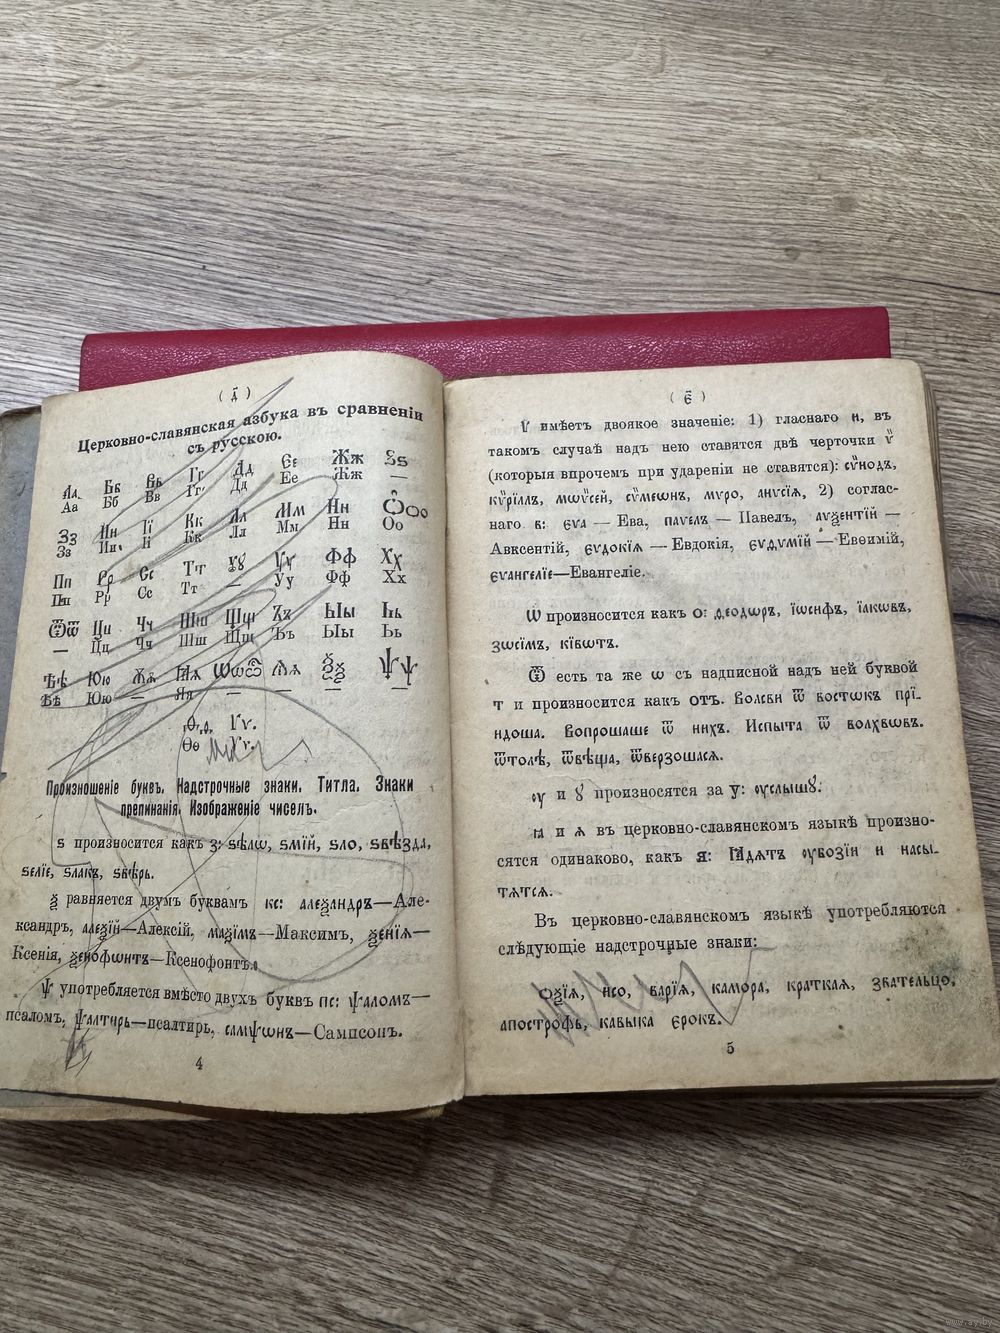 ( д҃ )
Церковно-славянская азбука въ сравненіи
съ русскою.
Аа Бб Вв Гг Дд Єє Жж Ѕѕ
Аа Бб Вв Гг Дд Ее Жж —
Зз Ии Її Кк Лл Мм Нн Ѻѻо
Зз Ии Іі Кк Лл Мм Нн Оо
Пп Рр Сс Тт Ꙋꙋ Ѵѵ Фф Хх
Пп Рр Сс Тт — Уу Фф Хх
Ѿѿ Цц Чч Шш Щщ Ъъ Ыы Ьь
— Цц Чч Шш Щщ Ъъ Ыы Ьь
Ѣѣ Юю Ѫѫ Ꙗꙗ Ѡѡ Ѧѧ Ѯѯ Ѱѱ
Ѣѣ Юю — Яя — — — —
Ѳѳ Ѵѵ.
Ѳѳ Ѵѵ.
Произношеніе буквъ. Надстрочные знаки. Титла. Знаки
препинанія. Изображеніе чиселъ.
ѕ произносится какъ з: ѕѣлѡ, ѕмій, ѕло, ѕвѣзда,
ѕеліе, ѕлакъ, ѕвѣрь.
ѯ равняется двумъ буквамъ кс: алеѯандръ—Але-
ксандръ, алеѯій—Алексій, маѯімъ—Максимъ, ѯеніѧ—
Ксенія, ѯенофѡнтъ—Ксенофонтъ.
Ѱ употребляется вмѣсто двухъ буквъ пс: ѱаломъ—
псаломъ, ѱалтирь—псалтирь, самѱѡнъ—Сампсонъ.
4
( є҃ )
Ѵ имѣетъ двоякое значеніе: 1) гласнаго и, въ
такомъ случаѣ надъ нею ставятся двѣ черточки ѷ
(которыя впрочемъ при удареніи не ставятся): сѷнодъ,
кѷріллъ, мѡѷсей, сѷмеѡнъ, мѵро, анѵсіѧ, 2) соглас-
наго в: еѵа — Ева, паѵелъ — Павелъ, аѵѯентій —
Авксентій, еѵдокіѧ — Евдокія, еѵѳѵмій — Евѳимій,
еѵангеліе—Евангеліе.
Ѡ произносится какъ о: ѳеодѡръ, іѡсифъ, іакѡвъ,
зѡсімъ, ківѡтъ.
Ѿ есть та же ѡ съ надписной надъ ней буквой
т и произносится какъ отъ. Волсви ѿ востѡкъ прі-
идоша. Вопрошаше ѿ нихъ. Испыта ѿ волхвѡвъ.
ѿтолѣ, ѿвѣща, ѿверзошасѧ.
ѹ и ꙋ произносятся за у: ѹслышꙋ.
ꙗ и ѧ въ церковно-славянскомъ языкѣ произно-
сятся одинаково, какъ я: Ꙗдѧтъ ѹбозіи и насы-
тѧтсѧ.
Въ церковно-славянскомъ языкѣ употребляются
слѣдующіе надстрочные знаки:
оѯіѧ, исо, варіѧ, камора, краткаѧ, звательцо,
апострофъ, кавыка єрокъ.
5
www.ay.by